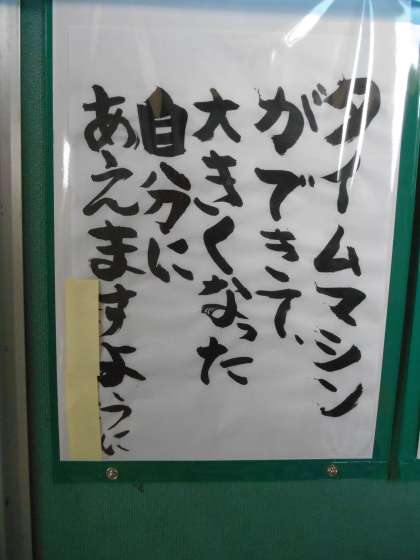 タイムマシン
ができて、
大きくなった
自分に
あえますように